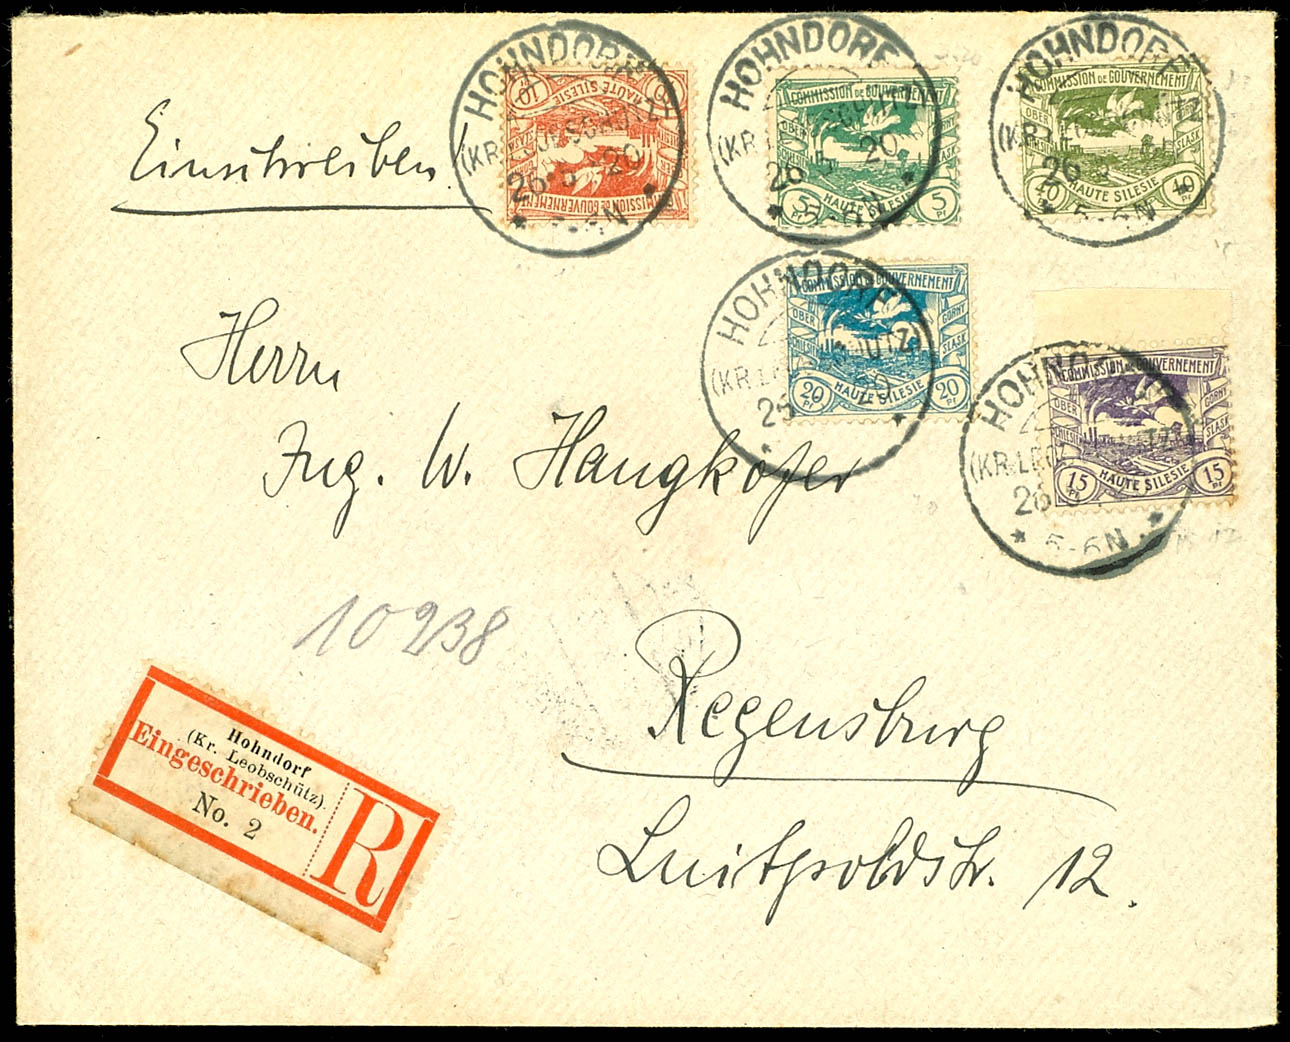 Einschreiben!
HOHNDORF
(KR. LEOBSCHÜTZ)
26 5 20
10 10
HAUTE SILESIE
COMMISSION DE GOUVERNEMENT
HOHNDORF
(KR. LEOBSCHÜTZ)
26 5 20
5-6N
COMMISSION DE GOUVERNEMENT
OBER
5 Pf 5 Pf
HAUTE SILESIE
HOHNDORF
26
5-6N
COMMISSION DE GOUVERNEMENT
OBER
40 40 Pf
HAUTE SILESIE
HOHNDORF
(KR. LEOBSCHÜTZ)
COMMISSION DE GOUVERNEMENT
OBER GORNY
SCHLESIEN SLASK
20 Pf 20 Pf
HAUTE SILESIE
HOHNDORF
(KR. LEOBSCHÜTZ)
26
5-6N
COMMISSION DE GOUVERNEMENT
OBER GORNY
SCHLESIEN SLASK
15 Pf 15 Pf
HAUTE SILESIE
Herrn
Ing. W. Hangkofer
10238
Regensburg
Luitpoldstr. 12.
Hohndorf
(Kr. Leobschütz).
Eingeschrieben.
No. 2
R